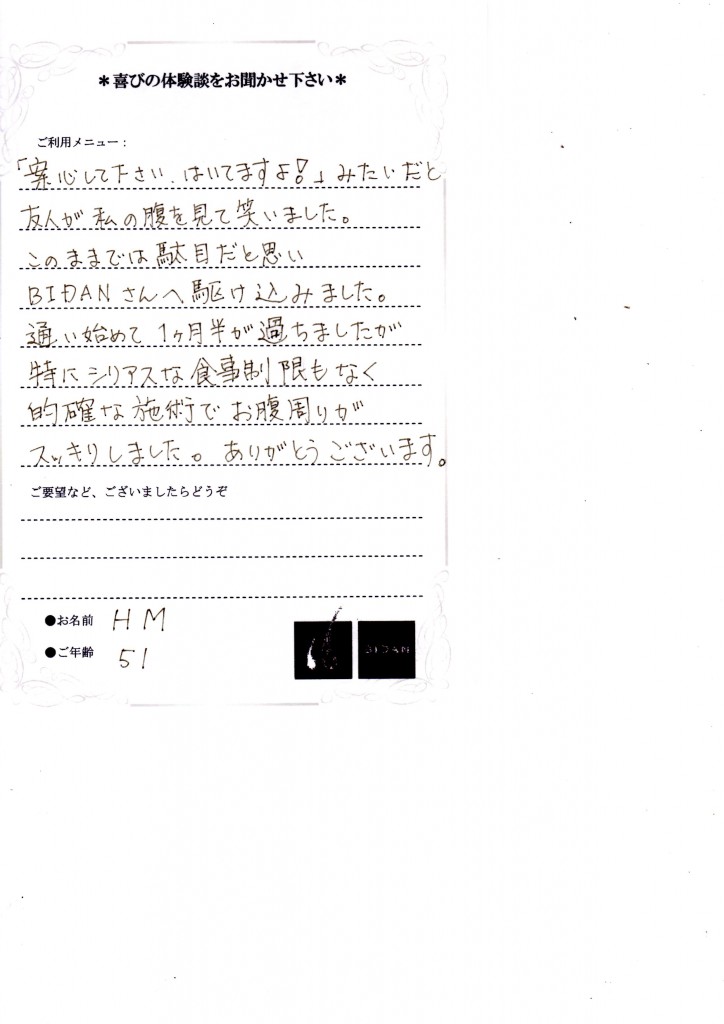 ＊喜びの体験談をお聞かせ下さい＊
ご利用メニュー：
「案心して下さい、はいてますよ！」みたいだと
友人が私の腹を見て笑いました。
このままでは駄目だと思い
BIDANさんへ駆け込みました。
通い始めて1ヶ月半が過ちましたが
特にシリアスな食事制限もなく
的確な施術でお腹周りが
スッキリしました。ありがとうございます。
ご要望など、ございましたらどうぞ
●お名前 HM
●ご年齢 51
BIDAN